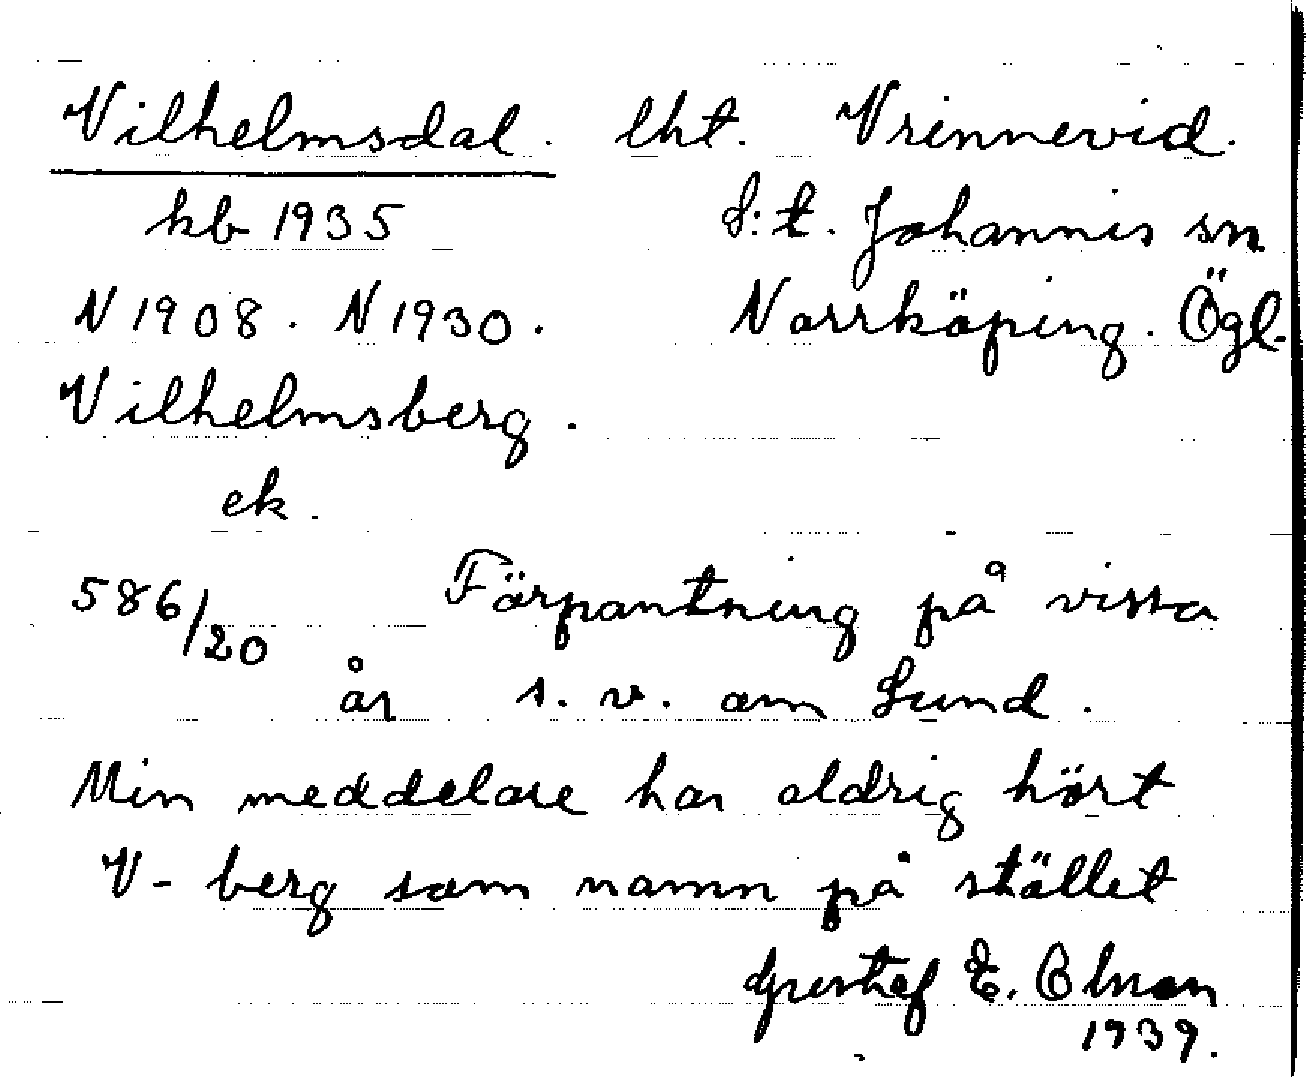 Vilhelmsdal. lht. Vrinnevid.
kb 1935 S:t. Johannis sn
N 1908. N 1930. Norrköping. Ögl.
Vilhelmsberg.
ek.
586/20 Förpantning på vissa
år s. v. om Lund.
Min meddelare har aldrig hört
V-berg som namn på stället
Gustaf E.
1939.